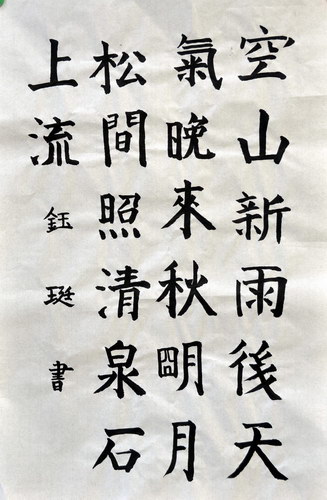 空山新雨後天
氣晚來秋朙月
松間照清泉石
上流
鈺珽書